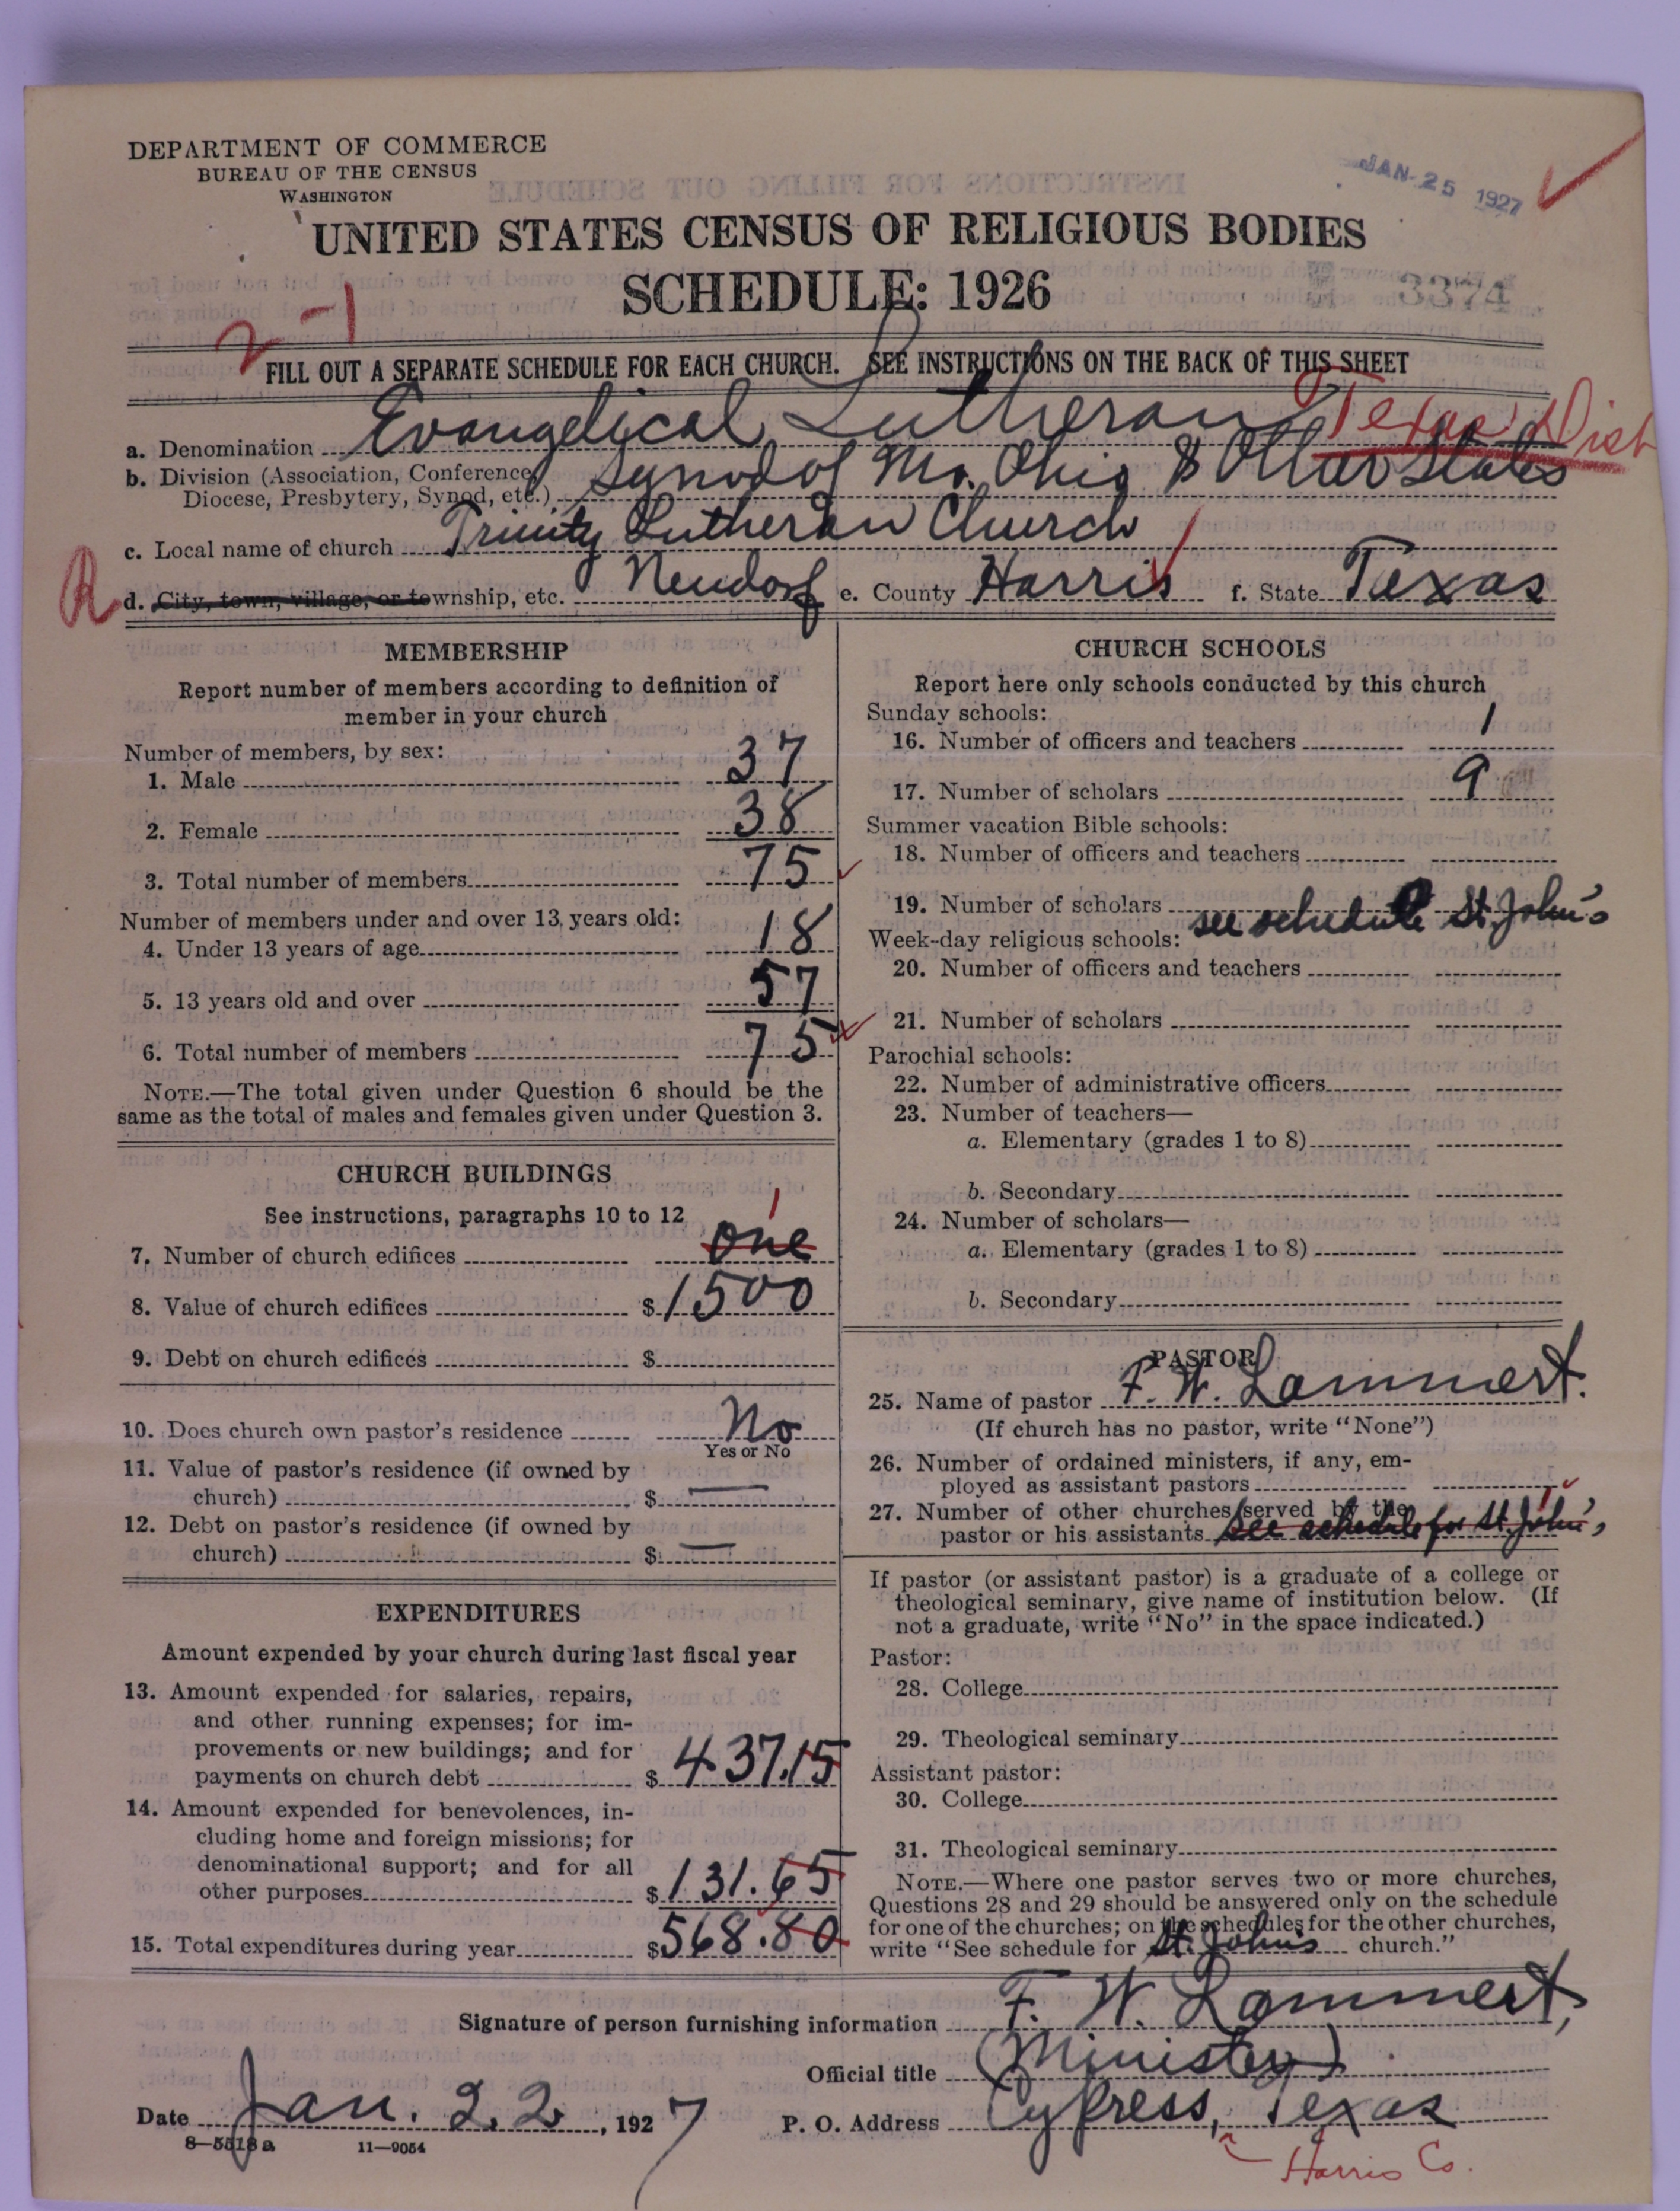 DEPARTMENT OF COMMERCE
BUREAU OF THE CENSUS
WASHINGTON
JAN 25 1927
UNITED STATES CENSUS OF RELIGIOUS BODIES
SCHEDULE: 1926
3374
2-1
FILL OUT A SEPARATE SCHEDULE FOR EACH CHURCH. SEE INSTRUCTIONS ON THE BACK OF THIS SHEET
a. Denomination Evangelical Lutheran Texas Dist
b. Division (Association, Conference,
Diocese, Presbytery, Synod, etc.) Synod of Mo. Ohio & Other States
c. Local name of church Trinity Lutheran Church
R d. City, town, village, or township, etc. Neudorf e. County Harris f. State Texas
MEMBERSHIP
Report number of members according to definition of
member in your church
Number of members, by sex:
1. Male 37
2. Female 38
3. Total number of members 75
Number of members under and over 13 years old:
4. Under 13 years of age 18
5. 13 years old and over 57
6. Total number of members 75
NOTE.—The total given under Question 6 should be the
same as the total of males and females given under Question 3.
CHURCH BUILDINGS
See instructions, paragraphs 10 to 12
1
7. Number of church edifices one
8. Value of church edifices $1500
9. Debt on church edifices $
10. Does church own pastor's residence No
Yes or No
11. Value of pastor's residence (if owned by
church) $ —
12. Debt on pastor's residence (if owned by
church) $ —
EXPENDITURES
Amount expended by your church during last fiscal year
13. Amount expended for salaries, repairs,
and other running expenses; for im-
provements or new buildings; and for
payments on church debt $ 437.15
14. Amount expended for benevolences, in-
cluding home and foreign missions; for
denominational support; and for all
other purposes $131.65
15. Total expenditures during year $568.80
CHURCH SCHOOLS
Report here only schools conducted by this church
Sunday schools:
16. Number of officers and teachers 1
17. Number of scholars 9
Summer vacation Bible schools:
18. Number of officers and teachers
19. Number of scholars
see schedule St. John's
Week-day religious schools:
20. Number of officers and teachers
21. Number of scholars
Parochial schools:
22. Number of administrative officers
23. Number of teachers—
a. Elementary (grades 1 to 8)
b. Secondary
24. Number of scholars—
a. Elementary (grades 1 to 8)
b. Secondary
PASTOR
25. Name of pastor F. W. Lammert.
(If church has no pastor, write "None")
26. Number of ordained ministers, if any, em-
ployed as assistant pastors
27. Number of other churches served by the
pastor or his assistants see schedule for St. John's
If pastor (or assistant pastor) is a graduate of a college or
theological seminary, give name of institution below. (If
not a graduate, write "No" in the space indicated.)
Pastor:
28. College
29. Theological seminary
Assistant pastor:
30. College
31. Theological seminary
NOTE.—Where one pastor serves two or more churches,
Questions 28 and 29 should be answered only on the schedule
for one of the churches; on the schedules for the other churches,
write "See schedule for St. John's church."
Signature of person furnishing information F. W. Lammert,
Official title (Minister)
Date Jan. 22, 1927 P. O. Address Cypress, Texas
8—5518a 11—9054
Harris Co.